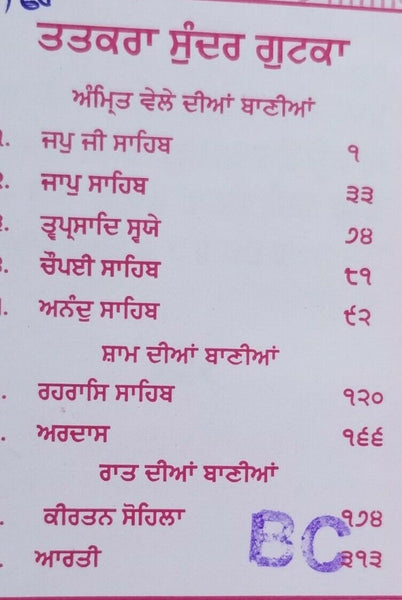 ਤਤਕਰਾ ਸੁੰਦਰ ਗੁਟਕਾ
ਅੰਮ੍ਰਿਤ ਵੇਲੇ ਦੀਆਂ ਬਾਣੀਆਂ
੧. ਜਪੁ ਜੀ ਸਾਹਿਬ ੧
੨. ਜਾਪੁ ਸਾਹਿਬ ੩੩
੩. ਤ੍ਵਪ੍ਰਸਾਦਿ ਸ੍ਵਯੇ ੭੪
੪. ਚੌਪਈ ਸਾਹਿਬ ੮੧
੫. ਅਨੰਦੁ ਸਾਹਿਬ ੯੨
ਸ਼ਾਮ ਦੀਆਂ ਬਾਣੀਆਂ
. ਰਹਰਾਸਿ ਸਾਹਿਬ ੧੨੦
. ਅਰਦਾਸ ੧੬੬
ਰਾਤ ਦੀਆਂ ਬਾਣੀਆਂ
. ਕੀਰਤਨ ਸੋਹਿਲਾ ੧੭੪
. ਆਰਤੀ ੩੧੩
BC